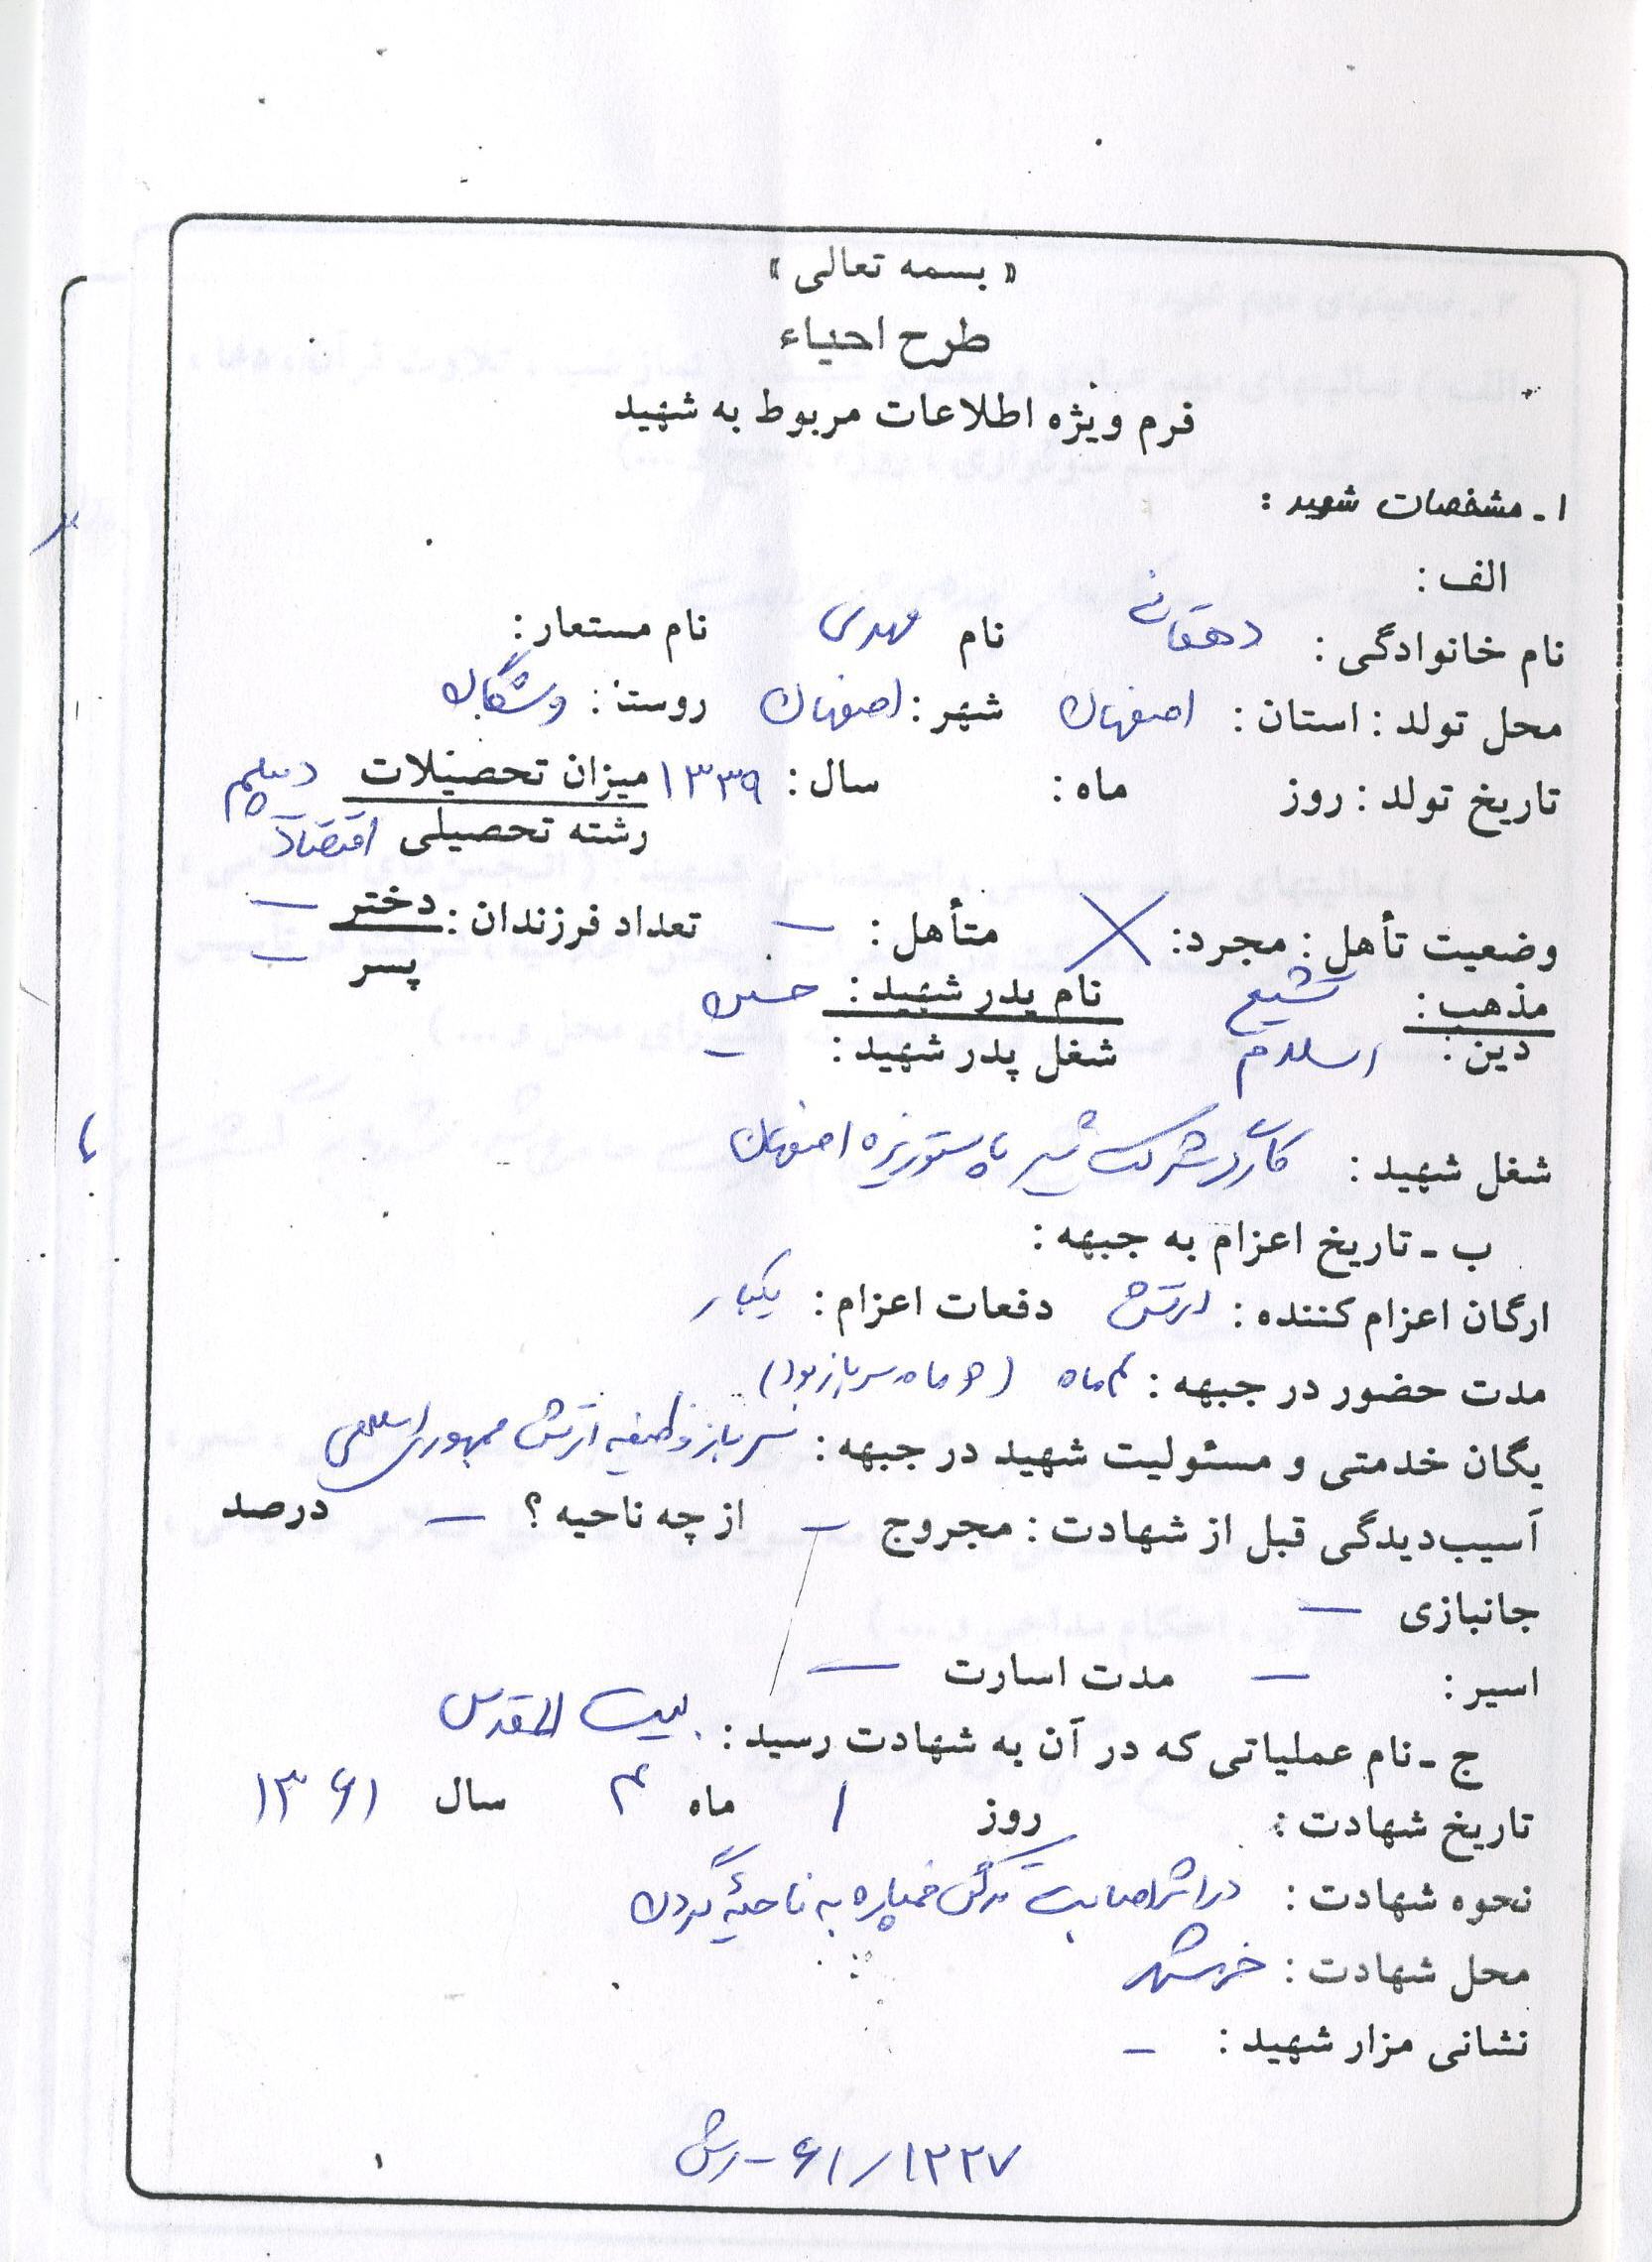 « بسمه تعالی »
طرح احیاء
فرم ویژه اطلاعات مربوط به شهید
۱ـ مشخصات شهید :
الف :
نام خانوادگی : دهقانی نام مهدی نام مستعار :
محل تولد : استان : اصفهان شهر : اصفهان روستا :
تاریخ تولد : روز ماه : سال : ۱۳۳۹ میزان تحصیلات دیپلم
رشته تحصیلی اقتصاد
وضعیت تأهل : مجرد : X متأهل : — تعداد فرزندان : دختر —
پسر —
مذهب : تشیع نام پدر شهید : حسین
دین : اسلام شغل پدر شهید : —
شغل شهید : کارگر شرکت شیر پاستوریزه اصفهان
ب ـ تاریخ اعزام به جبهه :
ارگان اعزام کننده : ارتش دفعات اعزام : یکبار
مدت حضور در جبهه : ماه ( ماه سرباز بود)
یگان خدمتی و مسئولیت شهید در جبهه : سرباز وظیفه ارتش جمهوری اسلامی
آسیب‌دیدگی قبل از شهادت : مجروح — از چه ناحیه ؟ — درصد
جانبازی —
اسیر : — مدت اسارت —
ج ـ نام عملیاتی که در آن به شهادت رسید : بیت المقدس
تاریخ شهادت : روز ۱ ماه ۳ سال ۱۳۶۱
نحوه شهادت : در اثر اصابت ترکش خمپاره به ناحیهٔ گردن
محل شهادت : خرمشهر
نشانی مزار شهید : —
۶۱/۱۲۲۷ - رش